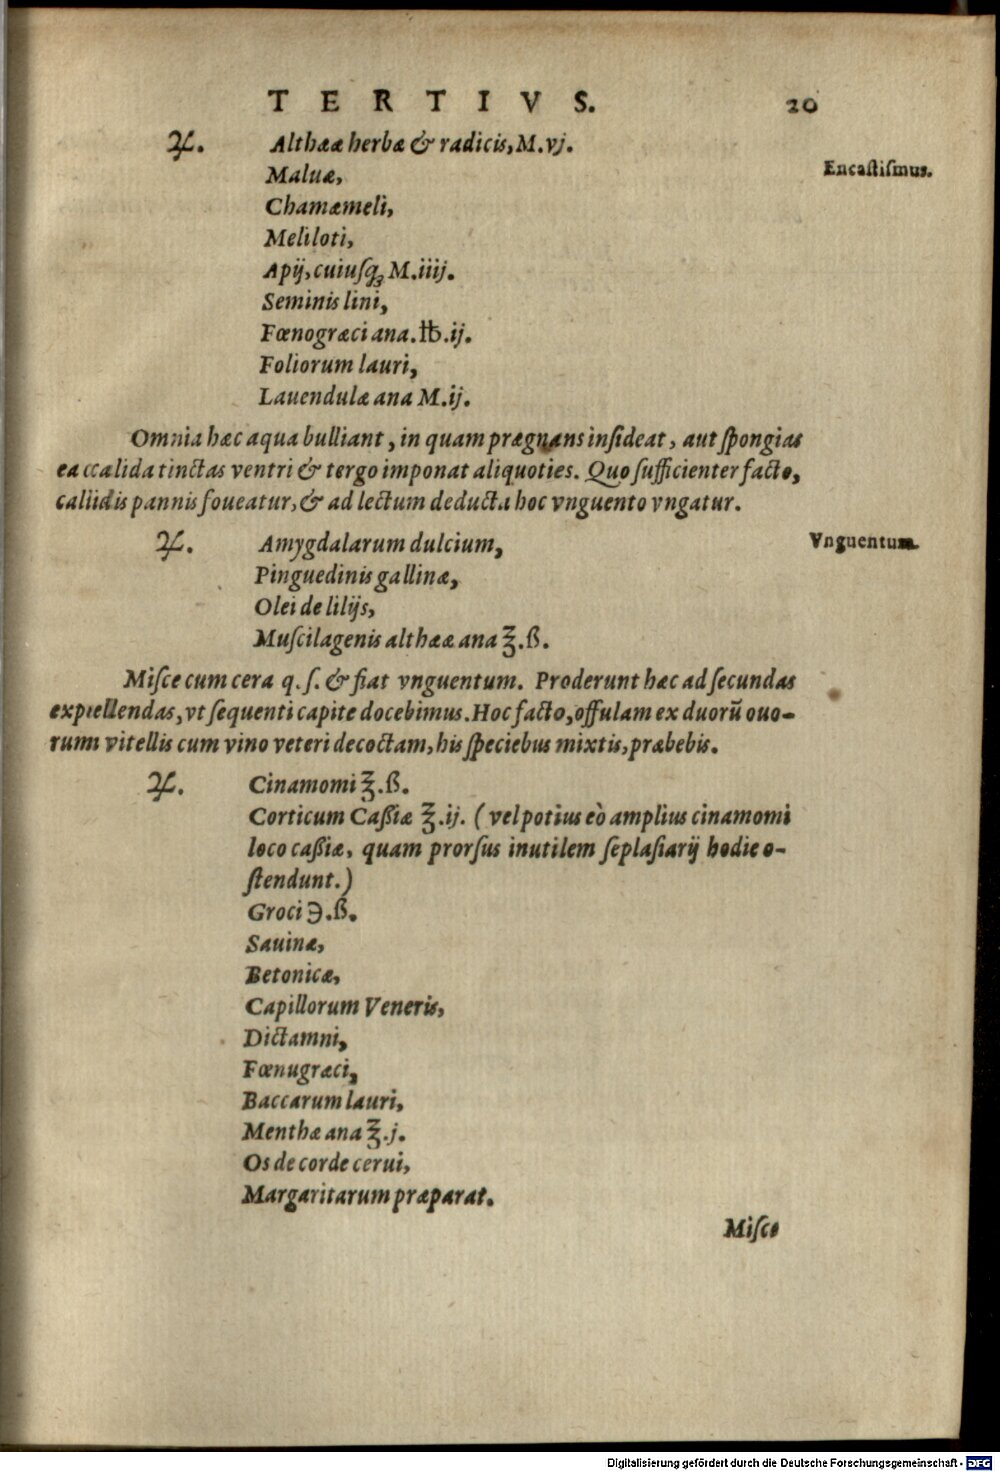 TERTIVS. 20
♃. Althææ herbæ & radicis, M.vj.
Encastiſmus.
Maluæ,
Chamæmeli,
Meliloti,
Apij, cuiuſq; M.iiij.
Seminis lini,
Fœnogræci ana.℔.ij.
Foliorum lauri,
Lauendulæ ana M.ij.
Omnia hæc aqua bulliant, in quam prægnans inſideat, aut ſpongias
ea ccalida tinctas ventri & tergo imponat aliquoties. Quo ſufficienter facto,
caliidis pannis foueatur, & ad lectum deducta hoc vnguento vngatur.
♃. Amygdalarum dulcium,
Vnguentum.
Pinguedinis gallinæ,
Olei de lilijs,
Muſcilagenis althææ ana ℥.ß.
Miſce cum cera q. ſ. & fiat vnguentum. Proderunt hæc ad ſecundas
expellendas, vt ſequenti capite docebimus. Hoc facto, offulam ex duorũ ouo-
rum vitellis cum vino veteri decoctam, his ſpeciebus mixtis, præbebis.
♃. Cinamomi ℥.ß.
Corticum Caßiæ ℥.ij. (vel potius eò amplius cinamomi
loco caßiæ, quam prorſus inutilem ſeplaſiarij hodie o-
ſtendunt.)
Groci ℈.ß.
Sauinæ,
Betonicæ,
Capillorum Veneris,
Dictamni,
Fœnugræci,
Baccarum lauri,
Menthæ ana ℥.j.
Os de corde cerui,
Margaritarum præparat.
Miſce
Digitalisierung gefördert durch die Deutsche Forschungsgemeinschaft - DFG